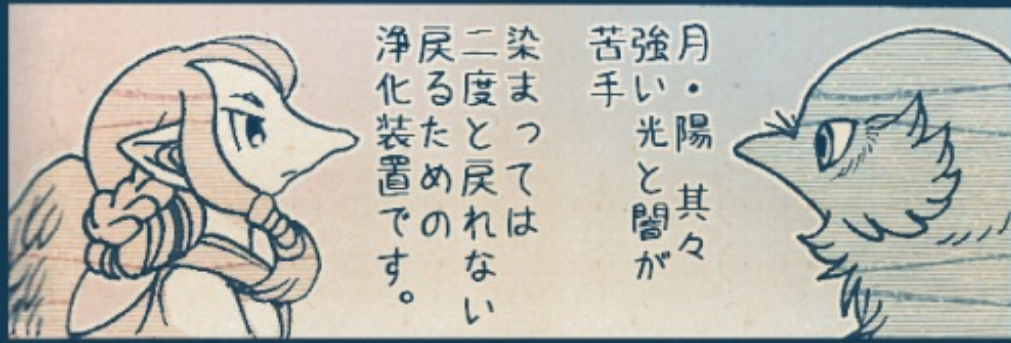 月・陽 其々
強い光と闇が
苦手
染まっては
二度と戻れない
戻るための
浄化装置です。